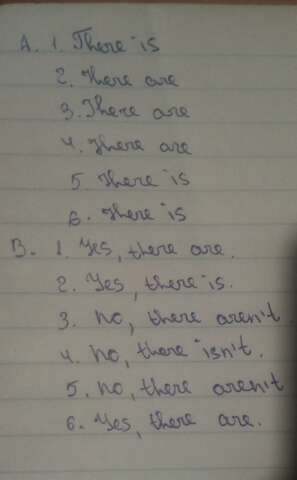 A. 1. There is
2. There are
3. There are
4. There are
5. There is
6. There is
B. 1. Yes, there are.
2. Yes, there is.
3. No, there aren't.
4. No, there isn't.
5. No, there aren't
6. Yes, there are.